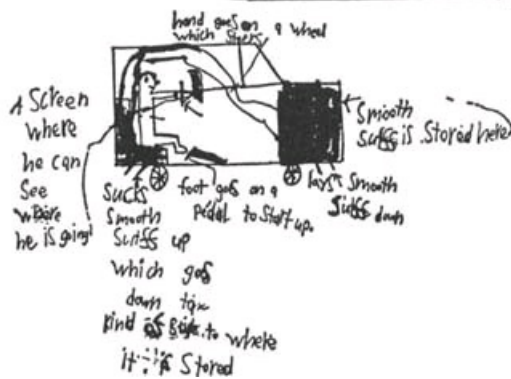 hand goes on a wheel
which steers
A Screen
where
he can
see
where
he is going!
Smooth
stuff is stored here
sucks
smooth
stuff up
which goes
down
kind of to where
it is stored
foot goes on a
pedal to start up.
lays smooth
stuff down